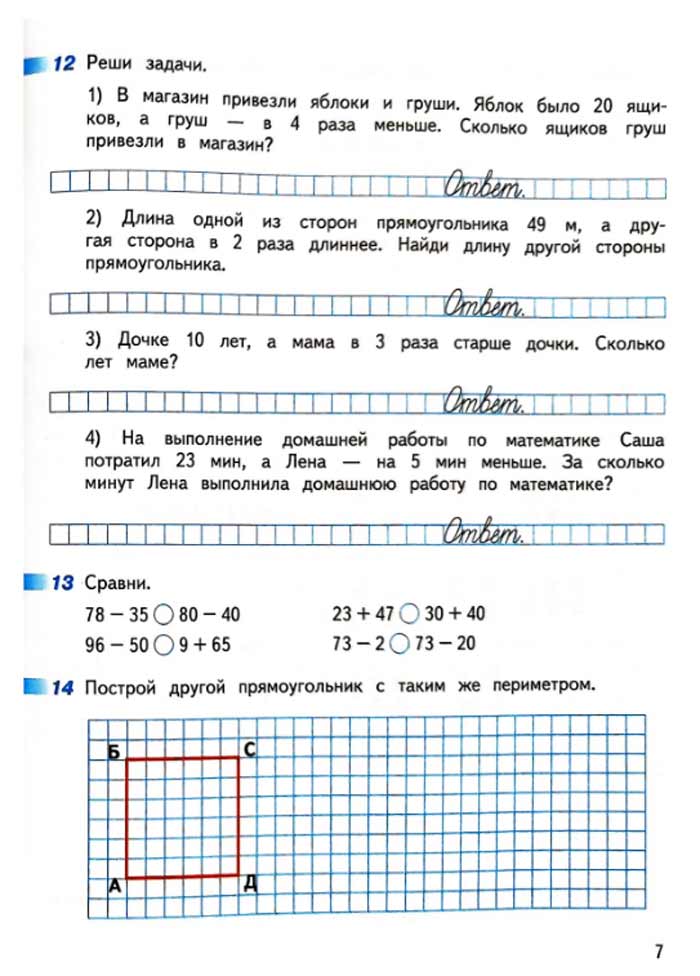 12 Реши задачи.
1) В магазин привезли яблоки и груши. Яблок было 20 ящи-
ков, а груш — в 4 раза меньше. Сколько ящиков груш
привезли в магазин?
Ответ.
2) Длина одной из сторон прямоугольника 49 м, а дру-
гая сторона в 2 раза длиннее. Найди длину другой стороны
прямоугольника.
Ответ.
3) Дочке 10 лет, а мама в 3 раза старше дочки. Сколько
лет маме?
Ответ.
4) На выполнение домашней работы по математике Саша
потратил 23 мин, а Лена — на 5 мин меньше. За сколько
минут Лена выполнила домашнюю работу по математике?
Ответ.
13 Сравни.
78 − 35 ○ 80 − 40 23 + 47 ○ 30 + 40
96 − 50 ○ 9 + 65 73 − 2 ○ 73 − 20
14 Построй другой прямоугольник с таким же периметром.
Б С
А Д
7